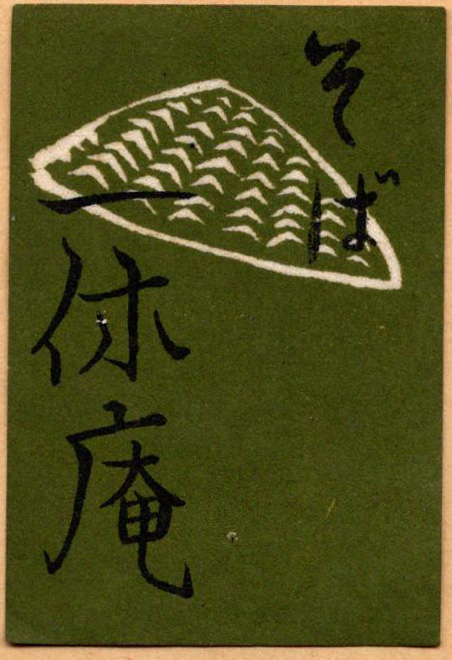 そば
一休庵